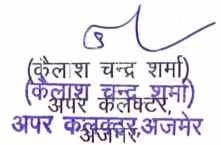 (कैलाश चन्द्र शर्मा)
(कैलाश चन्द्र शर्मा)
अपर कलेक्टर,
अपर कलक्टर, अजमेर
अजमेर